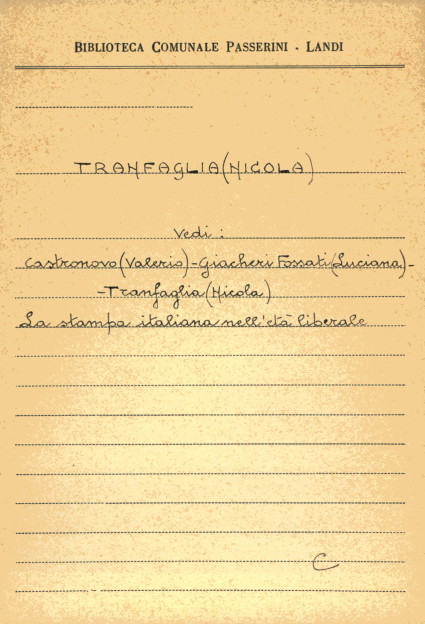 BIBLIOTECA COMUNALE PASSERINI - LANDI
TRANFAGLIA (NICOLA)
Vedi:
Castronovo (Valerio) - Giacheri Fossati (Luciana) -
- Tranfaglia (Nicola)
La stampa italiana nell'età liberale
C